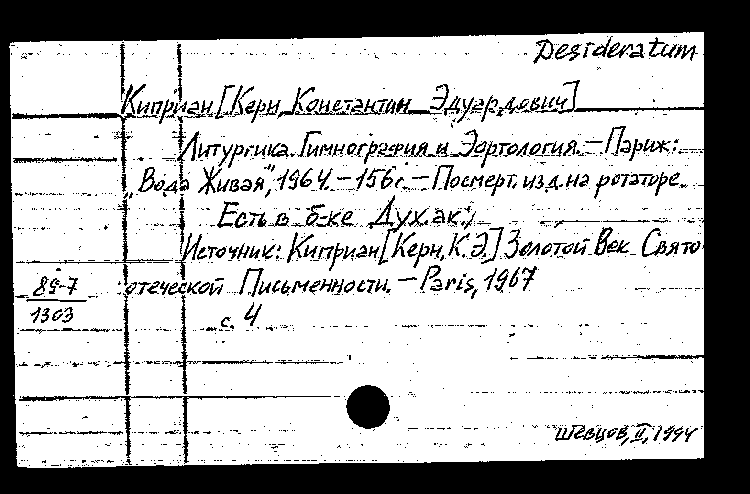 Desideratum
Киприан [Керн, Константин Эдуардович]
Литургика. Гимнография и Эортология. — Париж:
„Вода Живая", 1964. — 156 с. — Посмерт. изд. на ротаторе.
Есть в б-ке Дух. ак.
Источник: Киприан [Керн, К.Э.] Золотой Век Свято-
отеческой Письменности. — Paris, 1967
89-7
1303
с. 4
Шевцов, II, 1994